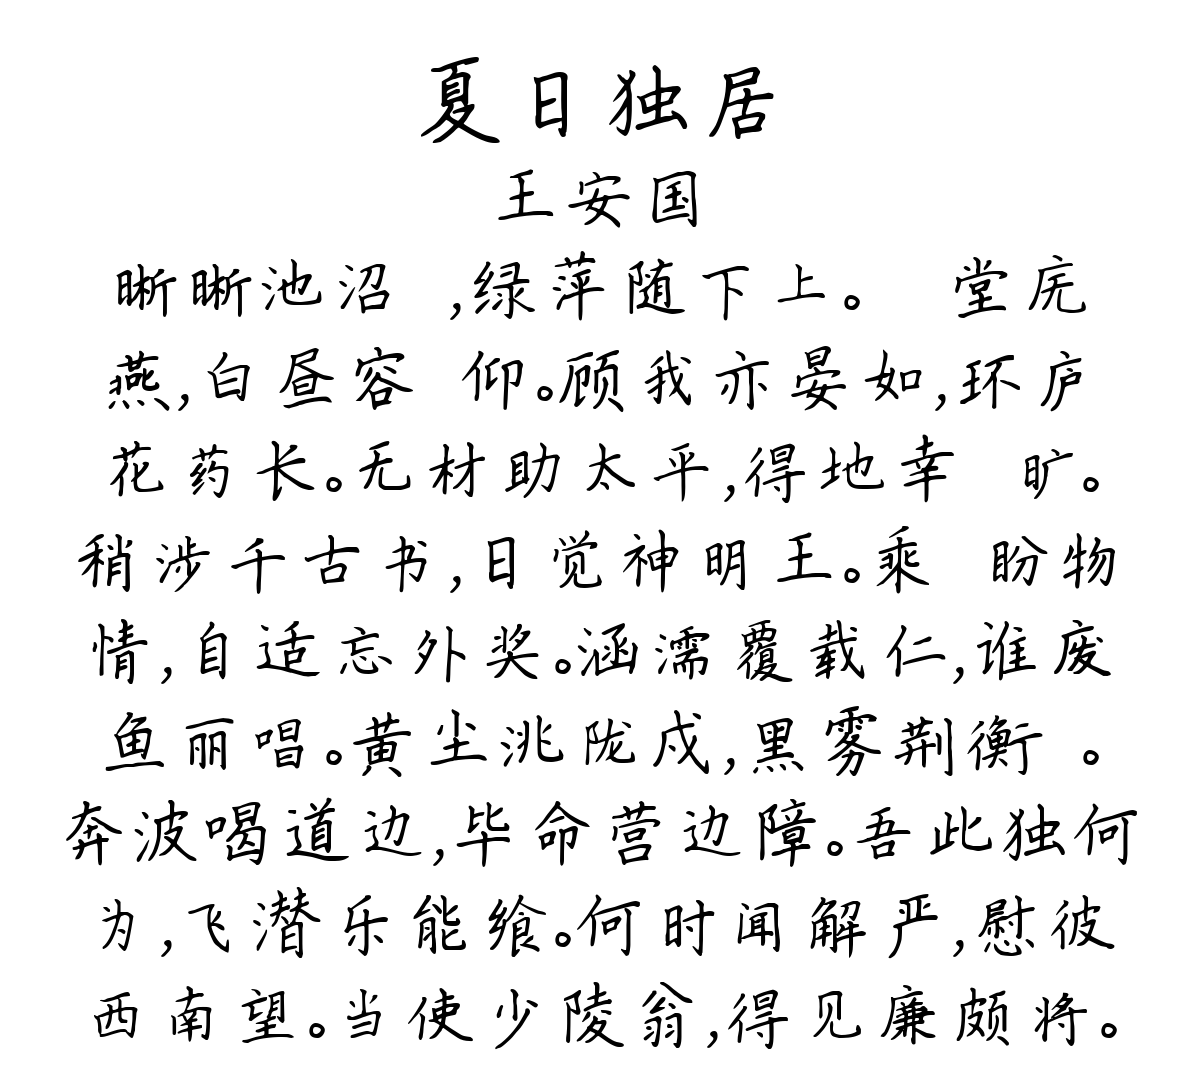 夏日独居
王安国
晰晰池沼 ,绿萍随下上。 堂庑
燕,白昼容 仰。顾我亦晏如,环庐
花药长。无材助太平,得地幸 旷。
稍涉千古书,日觉神明王。乘 盼物
情,自适忘外奖。涵濡覆载仁,谁废
鱼丽唱。黄尘洮陇戍,黑雾荆衡 。
奔波喝道边,毕命营边障。吾此独何
为,飞潜乐能飨。何时闻解严,慰彼
西南望。当使少陵翁,得见廉颇将。